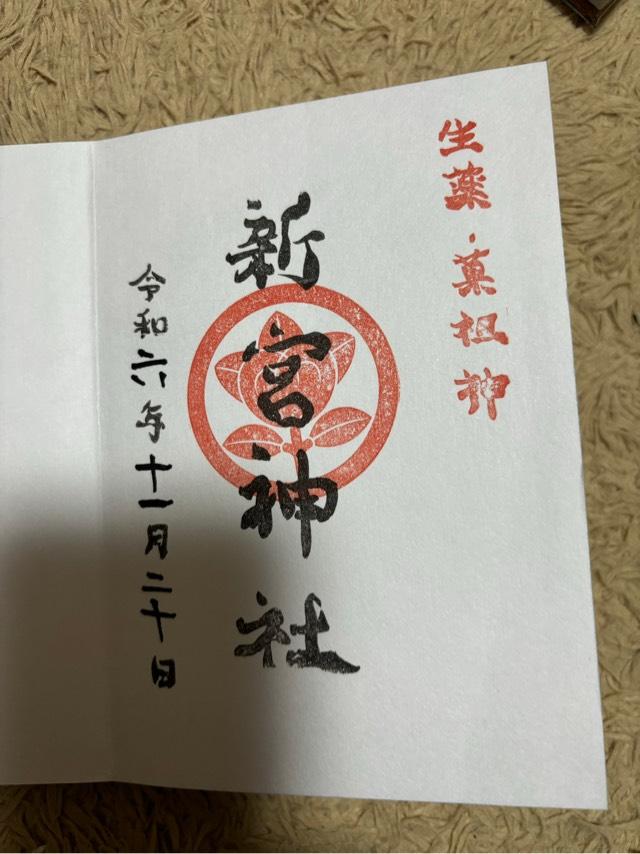 生薬・菓祖神
新宮神社
令和六年十一月二十日